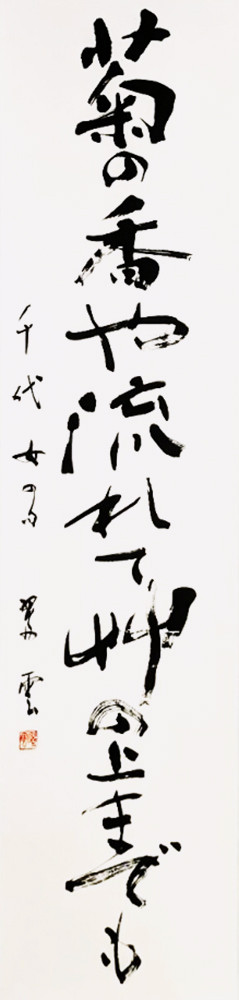 菊の香や流れて艸の上までも
千代女の句 翠雲